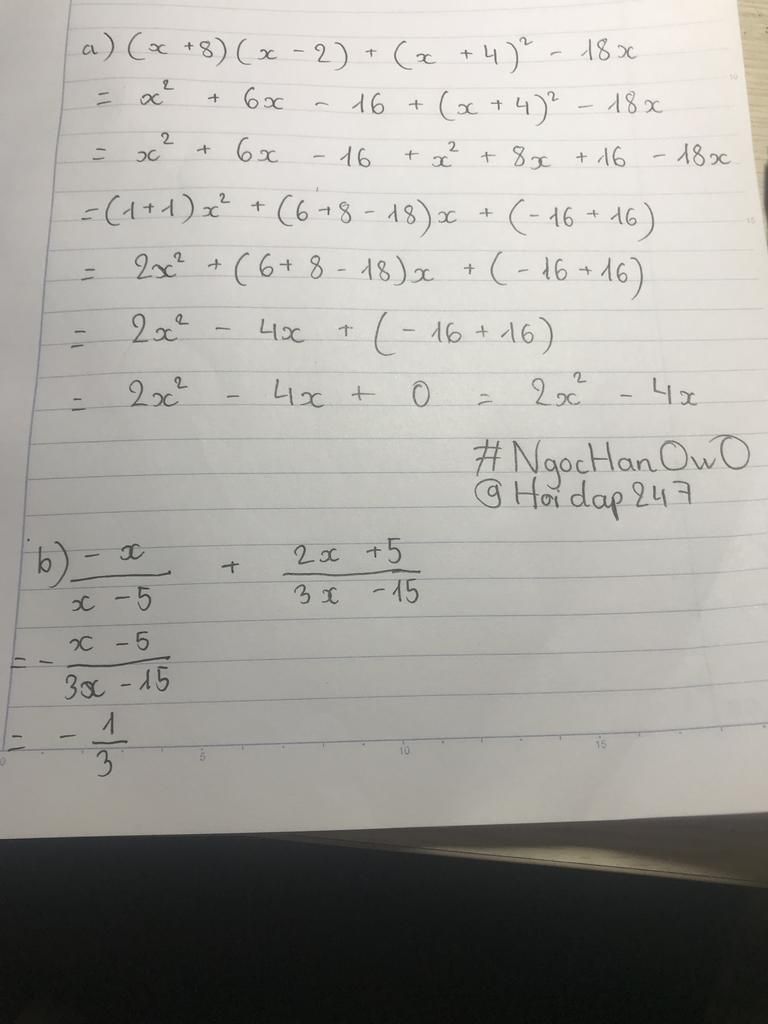 a) (x + 8)(x - 2) + (x + 4)² - 18x
= x² + 6x - 16 + (x + 4)² - 18x
= x² + 6x - 16 + x² + 8x + 16 - 18x
= (1 + 1)x² + (6 + 8 - 18)x + (-16 + 16)
= 2x² + (6 + 8 - 18)x + (-16 + 16)
= 2x² - 4x + (-16 + 16)
= 2x² - 4x + 0 = 2x² - 4x
#NgocHanOwO
@Hoidap247
b) -x/(x - 5) + (2x + 5)/(3x - 15)
= - (x - 5)/(3x - 15)
= - 1/3
0 5 10 15
10
15